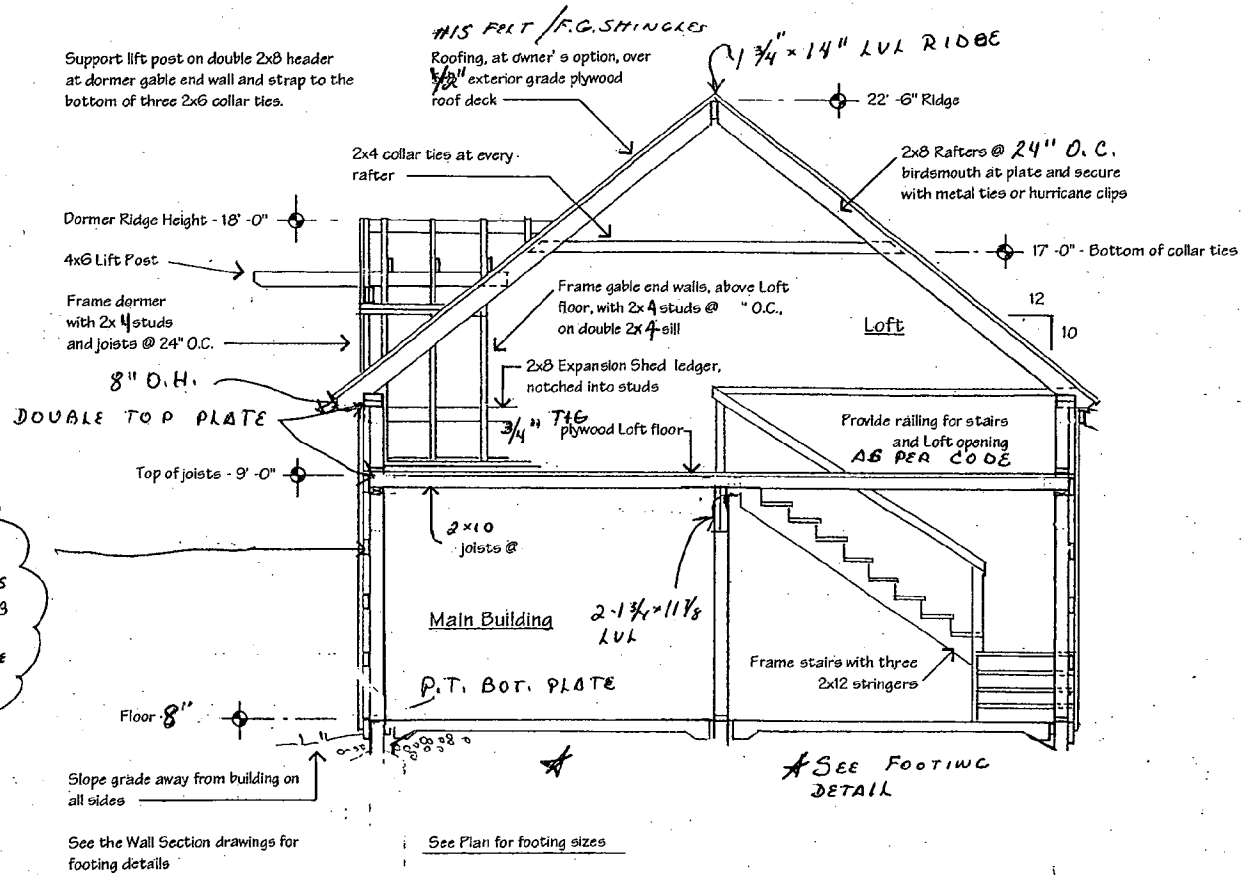 #15 FELT / F.G. SHINGLES
Support lift post on double 2x8 header
at dormer gable end wall and strap to the
bottom of three 2x6 collar ties.
Roofing, at owner's option, over
1/2" exterior grade plywood
roof deck
1 3/4" x 14" LVL RIDGE
22' -6" Ridge
2x4 collar ties at every
rafter
2x8 Rafters @ 24" O.C.
birdsmouth at plate and secure
with metal ties or hurricane clips
Dormer Ridge Height - 18' -0"
17' -0" - Bottom of collar ties
4x6 Lift Post
Frame dormer
with 2x 4 studs
and joists @ 24" O.C.
Frame gable end walls, above Loft
floor, with 2x 4 studs @ " O.C.,
on double 2x 4 sill
Loft
12
10
2x8 Expansion Shed ledger,
notched into studs
8" O.H.
DOUBLE TOP PLATE
3/4" T&G plywood Loft floor
Provide railing for stairs
and Loft opening
AS PER CODE
Top of joists - 9' -0"
2x10
joists @
Main Building
2-1 3/4 x 11 7/8
LVL
Frame stairs with three
2x12 stringers
P.T. BOT. PLATE
Floor 8"
SEE FOOTING
DETAIL
Slope grade away from building on
all sides
See the Wall Section drawings for
footing details
See Plan for footing sizes